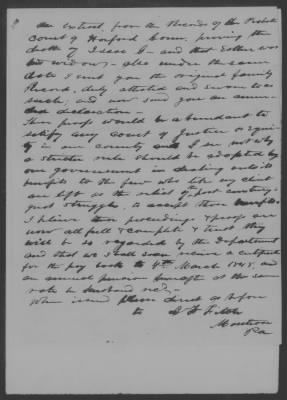 an extract from the Records of the Probate
Court of Hartford Conn, proving the
death of Isaac G— and that Esther was
his widow, – also under the same
date I sent you the original family
Record, duly attested and sworn to as
such, and now send you an amen-
ded declaration –
These proofs would be abundant to
satisfy any court of Justice or Equi-
ty in our county and I see not why
a stricter rule should be adopted by
our government in dealing out its
benefits to the few who like my client
are left as the relict of past
just struggles, to accept those benefits.
I believe these proceedings & proofs are
now all full & complete & trust they
will be so regarded by the Department
and that we shall soon receive a certificate
for the pay back to 4th March 1848, and
an annual pension hereafter at the same
rate her husband recd. –
When issued please direct as before
to
Montrose
Pa